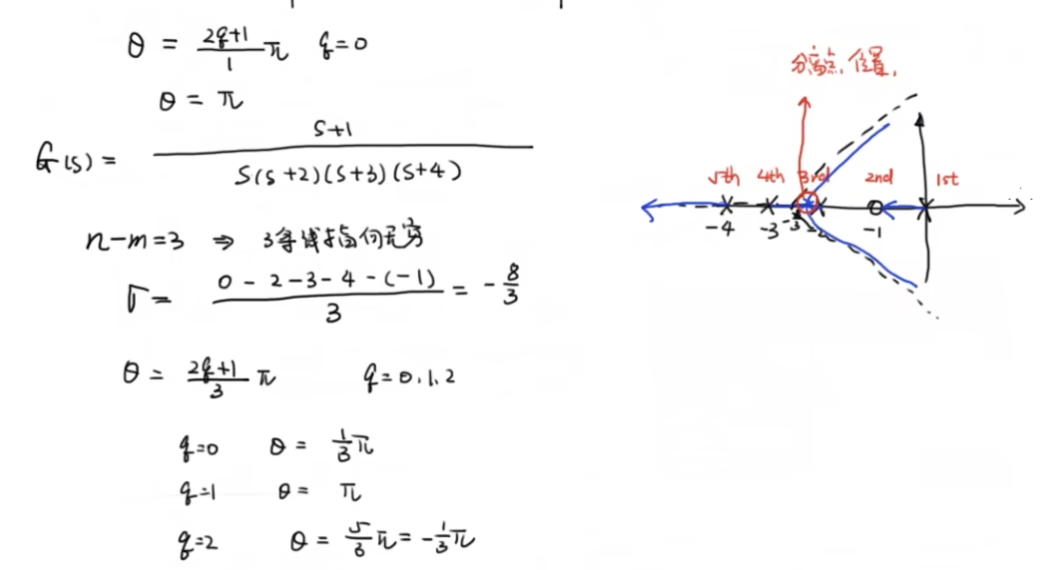 θ = (2q+1)/1 π q=0
θ = π
G(s) = (s+1)/(s(s+2)(s+3)(s+4))
n-m=3 ⇒ 3条线指向无穷
σ = (0-2-3-4-(-1))/3 = -8/3
θ = (2q+1)/3 π q=0.1.2
q=0 θ = 1/3 π
q=1 θ = π
q=2 θ = 5/3 π = -1/3 π
分离点位置.
5th 4th 3rd 2nd 1st
-4 -3 -2 -1